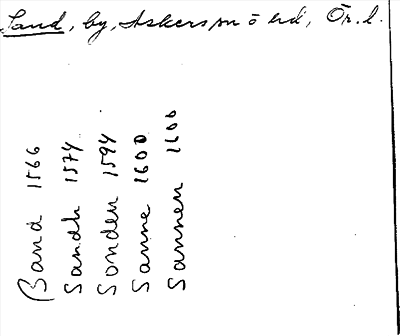 Sand, by, Askers sn o hd, Ör. l.
Band 1566
Sandh 1574
Sonden 1594
Sanne 1600
Sannen 1600